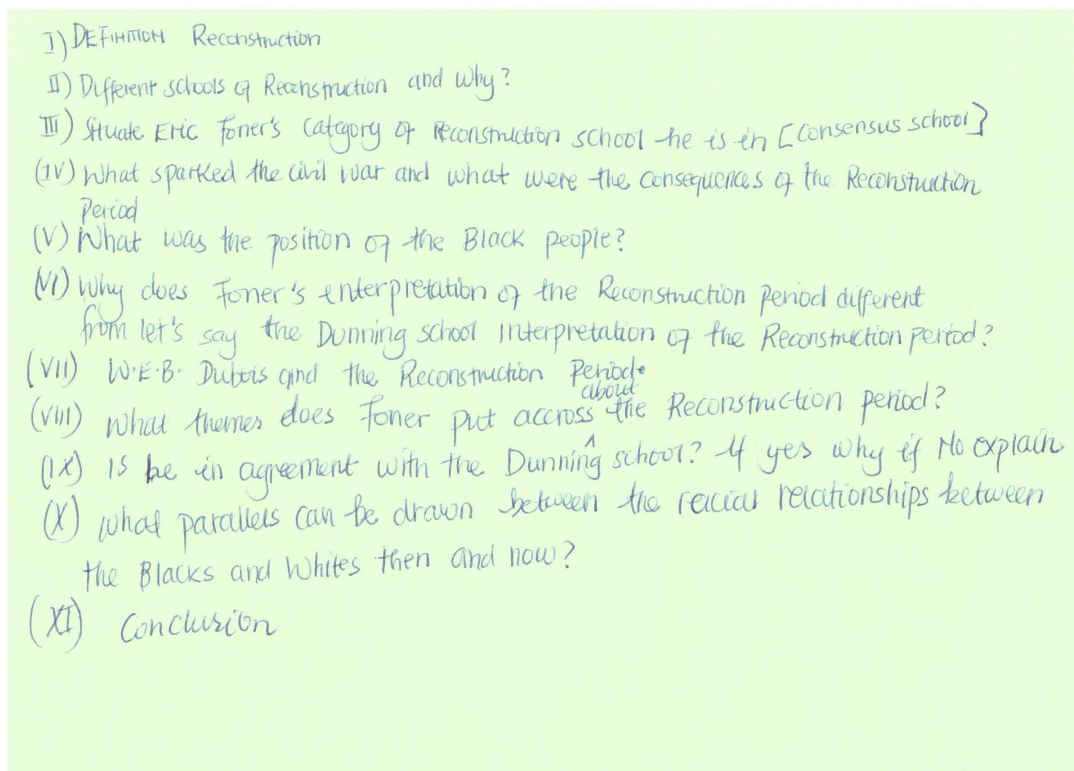 I) DEFINITION Reconstruction
II) Different schools of Reconstruction and why?
III) Situate Eric Foner's Category of Reconstruction school he is in [Consensus school]
(IV) What sparked the civil war and what were the consequences of the Reconstruction
Period
(V) What was the position of the Black people?
(VI) Why does Foner's enterpretation of the Reconstruction Period different
from let's say the Dunning school interpretation of the Reconstruction period?
(VII) W.E.B. Dubois and the Reconstruction Period.
about
(VIII) What themes does Foner put accross the Reconstruction period?
(IX) Is he in agreement with the Dunning school? If yes why if No explain
(X) What parallels can be drawn between the racial relationships between
the Blacks and Whites then and now?
(XI) Conclusion